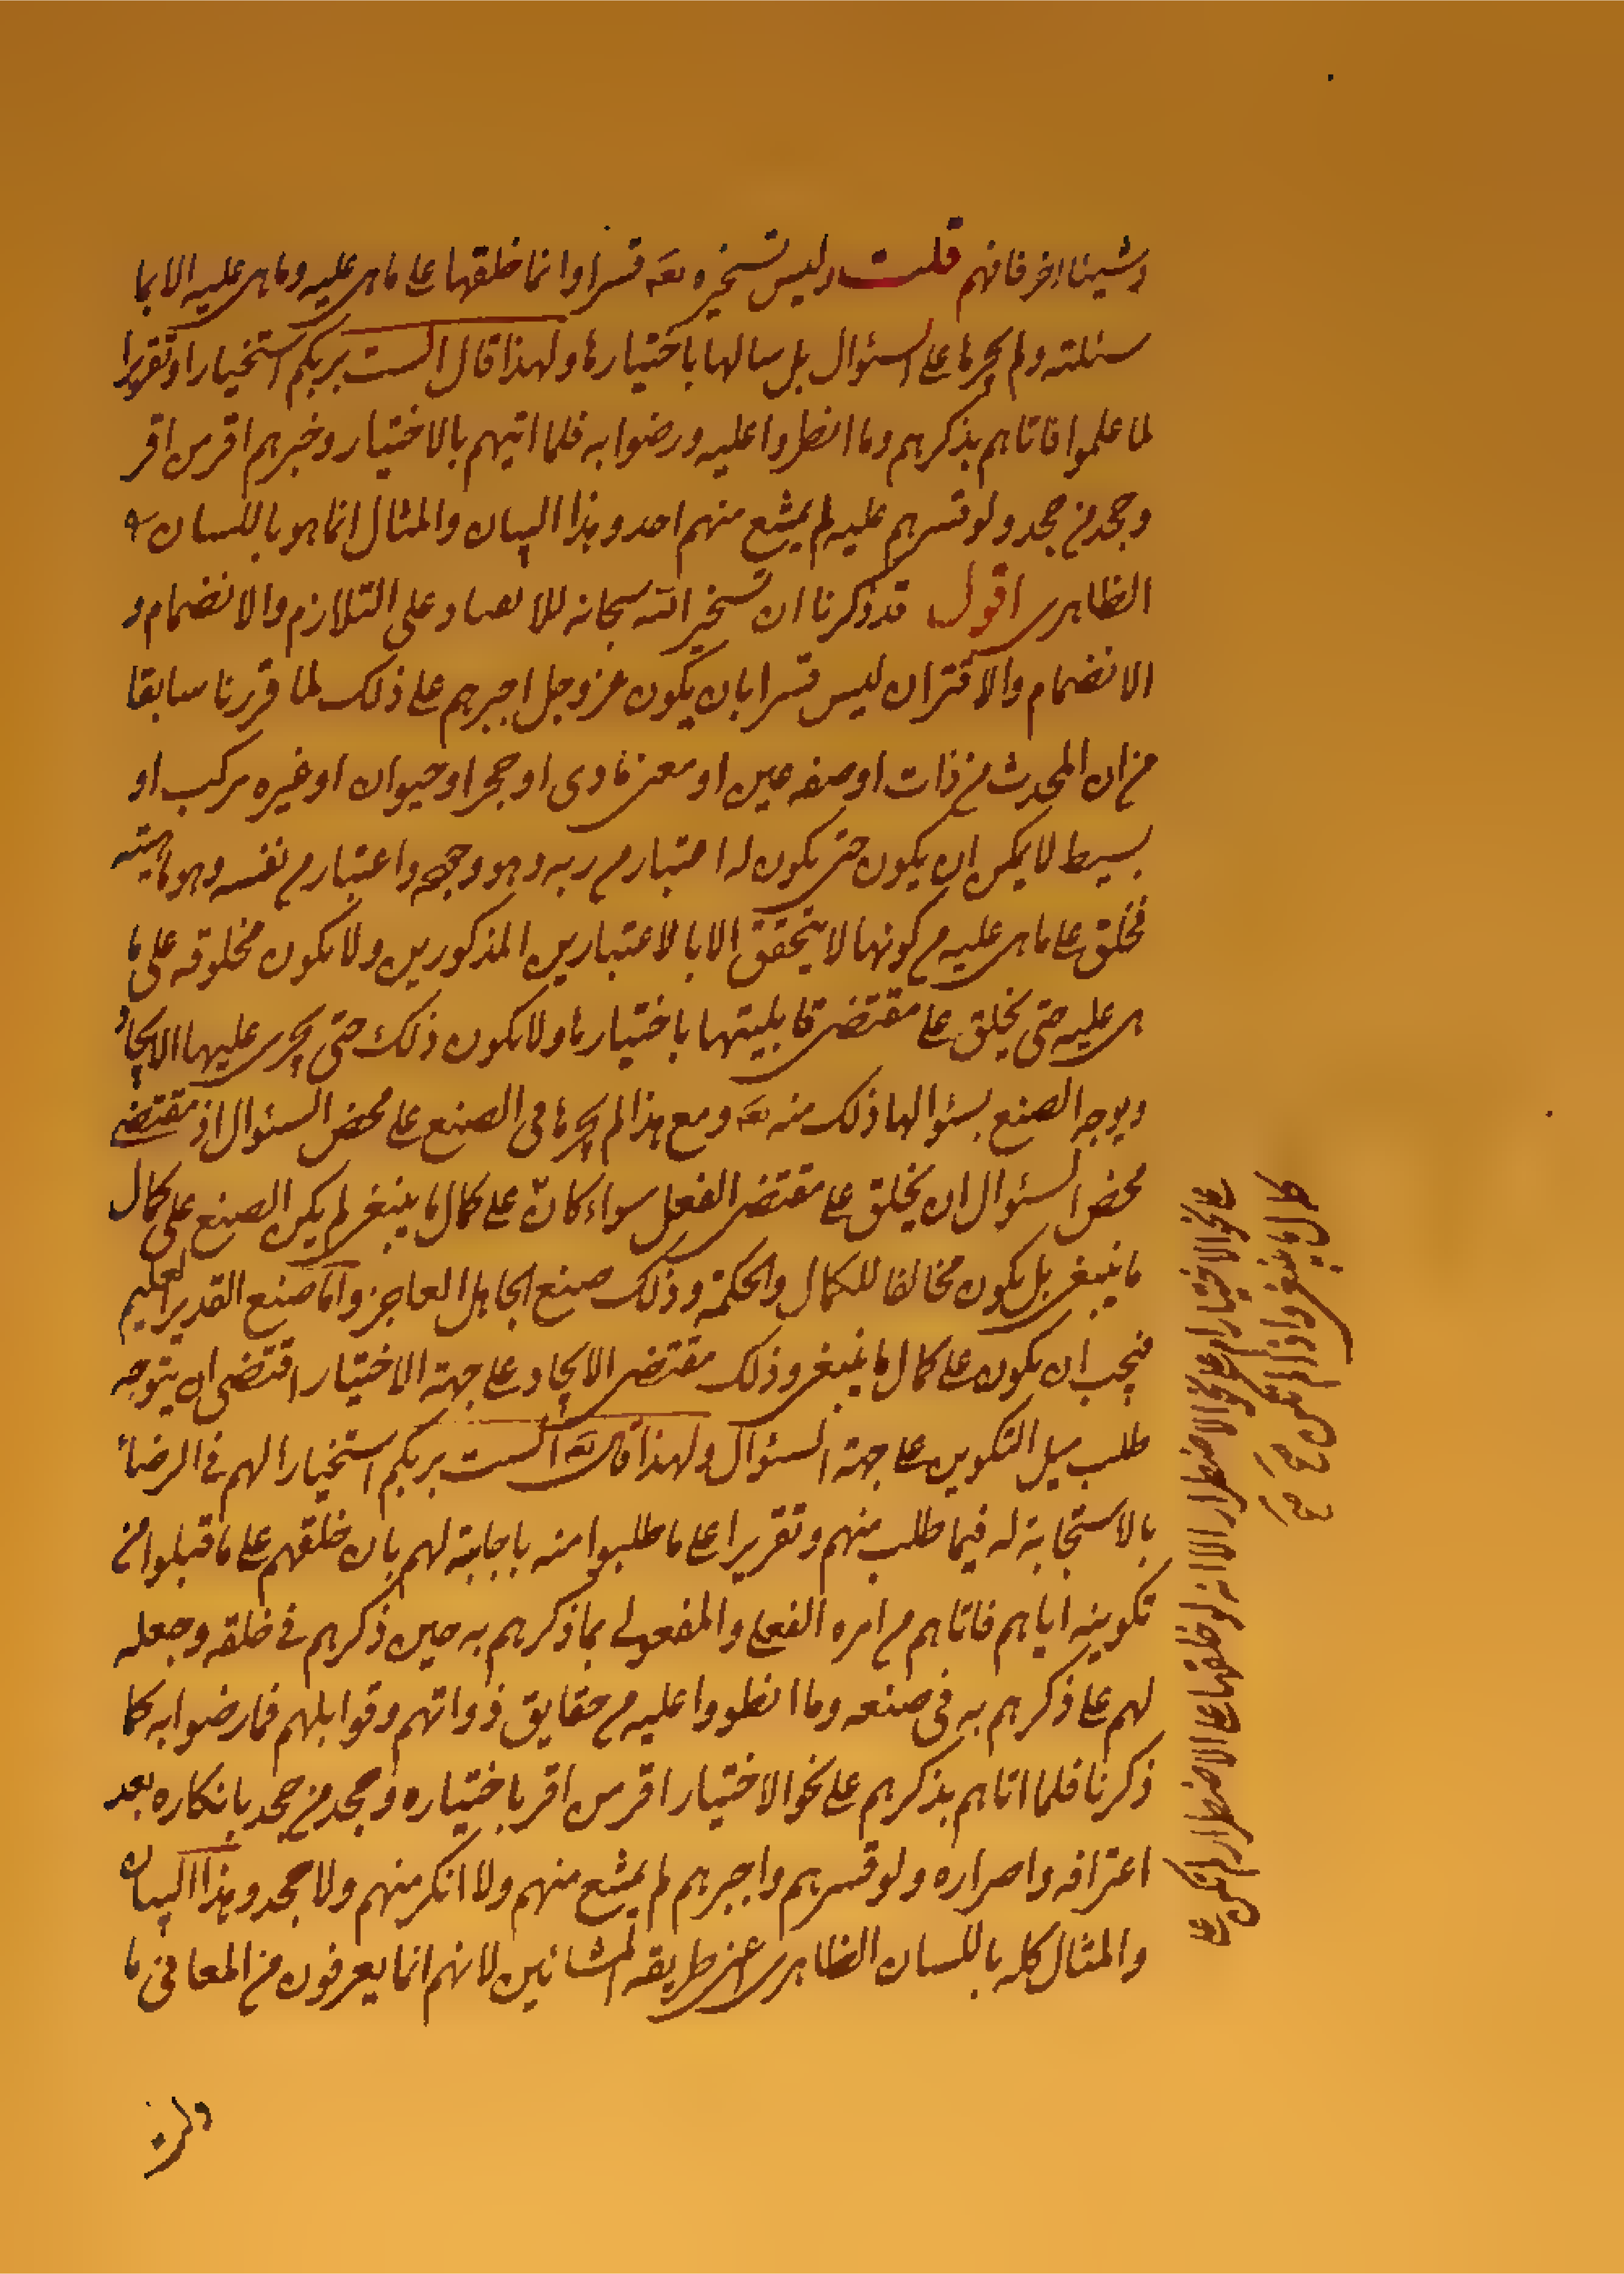 وشيئا اخر فافهم قلت وليس تسخيره تعه قسرا وانما خلقها على ما هى عليه وما هى عليه الا بما
سئلته ولم يجرها على السئوال بل سالها باختيارها ولهذا قال الست بربكم استخيارا وتقريرا
لما علموا فاتاهم بذكرهم وما انطووا عليه ورضوا به فلما اتيهم بالاختيار وخبرهم اقر من اقر
وجحد من جحد ولو قسرهم عليه لم يمتنع منهم احد وهذا البيان والمثال انما هو باللسان
الظاهرى اقول قد ذكرنا ان تسخير الله سبحانه للا على التلازم والانضمام و
الانضمام والاقتران ليس قسرا بان يكون عز وجل اجبرهم على ذلك لما قررنا سابقا
من ان المحدث من ذات او صفه عين او معنى مادى او حجر او حيوان او غيره مركب او
بسيط لا يمكن ان يكون حتى يكون له اعتبار من ربه وهو وجهه واعتبار من نفسه وهو ماهيته
فخلق على ما هى عليه من كونها لا يتحقق الا بالاعتبارين المذكورين ولا يكون مخلوقه على ما
هى عليه حتى يخلق على مقتضى قابليتها باختيارها ولا يكون ذلك حتى يجرى عليها الايجاد
ويوجه الصنع بسئوالها ذلك منه تعه ومع هذا لم يجرها فى الصنع على محض السئوال اذ مقتضى
محض السئوال ان يخلق على مقتضى الفعل سواء كان على كمال ما ينبغى لم يكن الصنع على كمال
ما ينبغى بل يكون مخالفا للكمال والحكمة وذلك صنع الجاهل العاجز واما صنع القدير العليم
فيجب ان يكون على كمال ما ينبغى وذلك مقتضى الايجاد على جهة الاختيار اقتضى ان يتوجه
طلب ميل التكوين على جهة السئوال ولهذا قال تعه الست بربكم استخيارا لهم فى الرضا
بالاستجابة له فيما طلب منهم وتقريرا على ما طلبوا منه باجابة لهم بان خلقهم على ما قبلوا من
تكوينه اياهم فاتاهم من امره الفعلى والمفعولى بما ذكرهم به حين ذكرهم فى خلقه وجعله
لهم على ذكرهم به فى صنعه وما انطووا عليه من حقايق ذواتهم وقوابلهم فما رضوا به كما
ذكرنا فلما اتاهم بذكرهم على نحو الاختيار اقر من اقر باختياره وجحد من جحد بانكاره بعد
اعترافه واصراره ولو قسرهم واجبرهم لم يمتنع منهم ولا انكر منهم ولا جحد وهذا البيان
والمثال كله باللسان الظاهرى اعنى طريقه المشائين لانهم انما يعرفون من المعانى ما
على نحو الاختيار او على نحو الاضطرار الا انه لو خلقها على الاضطرار لم تكن على
كمال ما ينبغى واذا لم تكن صح صح